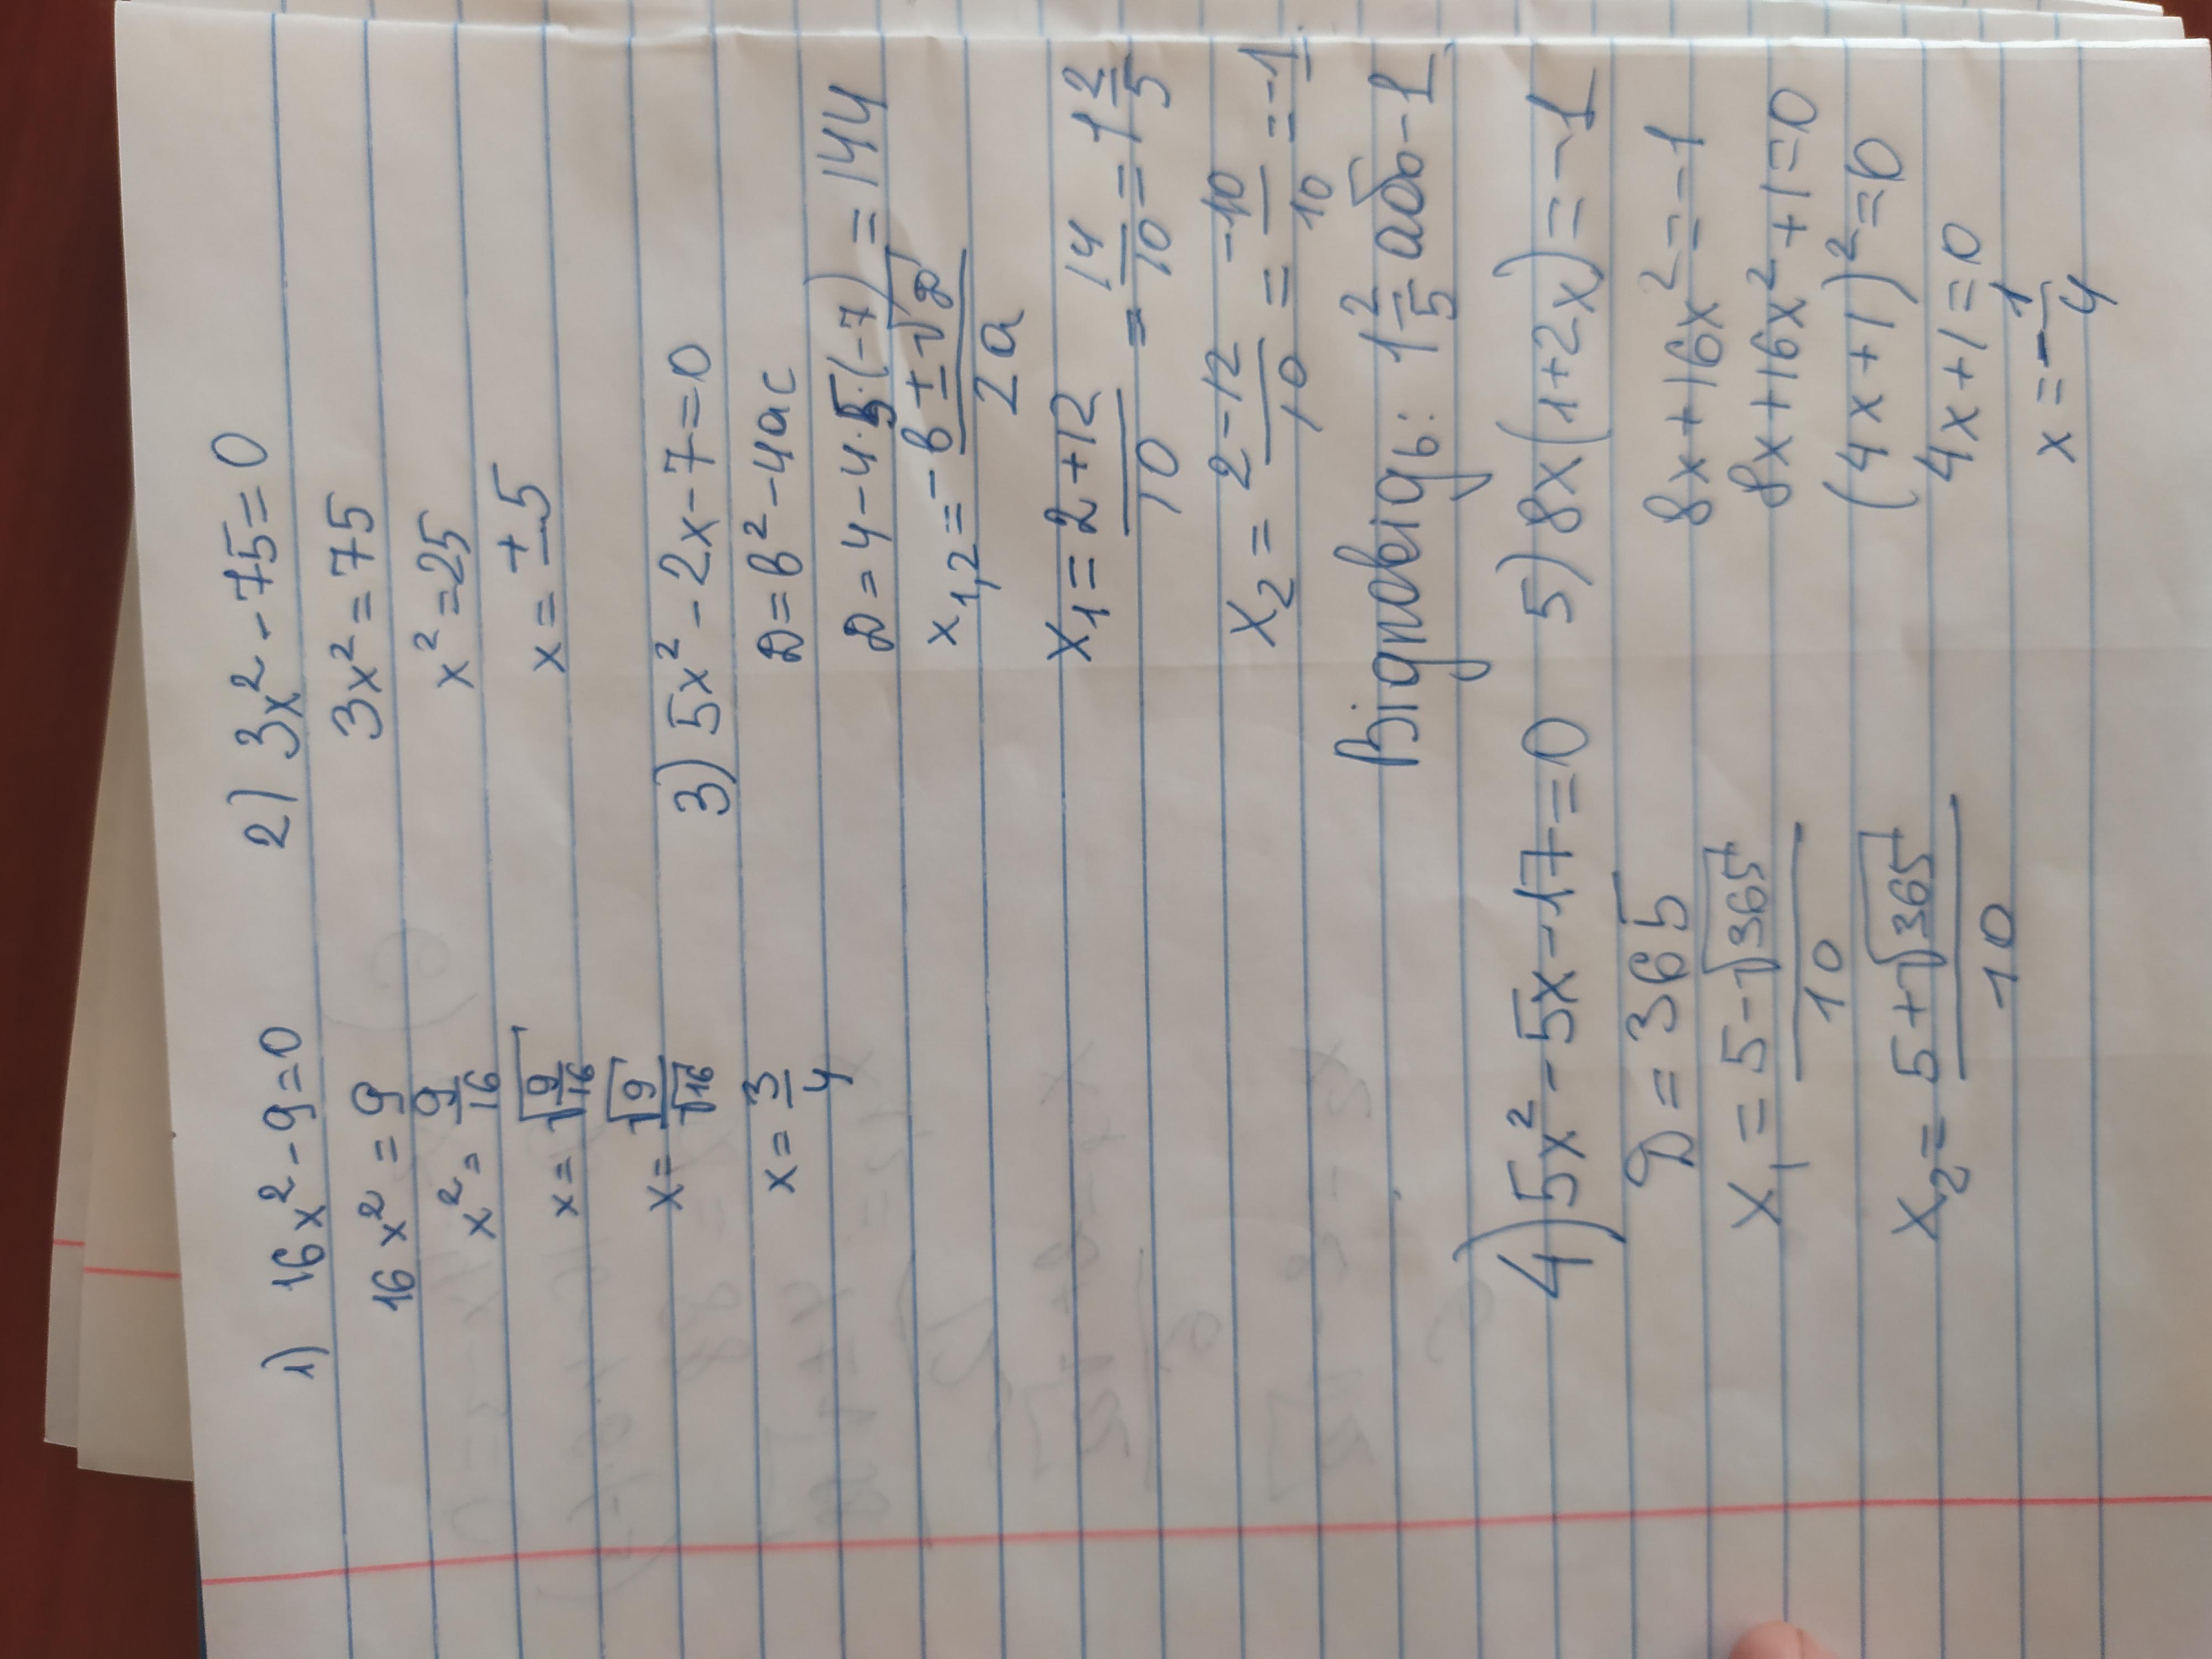 1) 16x² - 9 = 0
16x² = 9
x² = 9/16
x = √(9/16)
x = √9/√16
x = 3/4
2) 3x² - 75 = 0
3x² = 75
x² = 25
x = ±5
3) 5x² - 2x - 7 = 0
D = b² - 4ac
D = 4 - 4·5·(-7) = 144
x₁,₂ = (-b ± √D)/2a
x₁ = (2+12)/10 = 14/10 = 1 2/5
x₂ = (2-12)/10 = -10/10 = -1
Відповідь: 1 2/5 або -1
4) 5x² - 5x - 17 = 0
D = 365
x₁ = (5 - √365)/10
x₂ = (5 + √365)/10
5) 8x(1+2x) = -1
8x + 16x² = -1
8x + 16x² + 1 = 0
(4x + 1)² = 0
4x + 1 = 0
x = -1/4